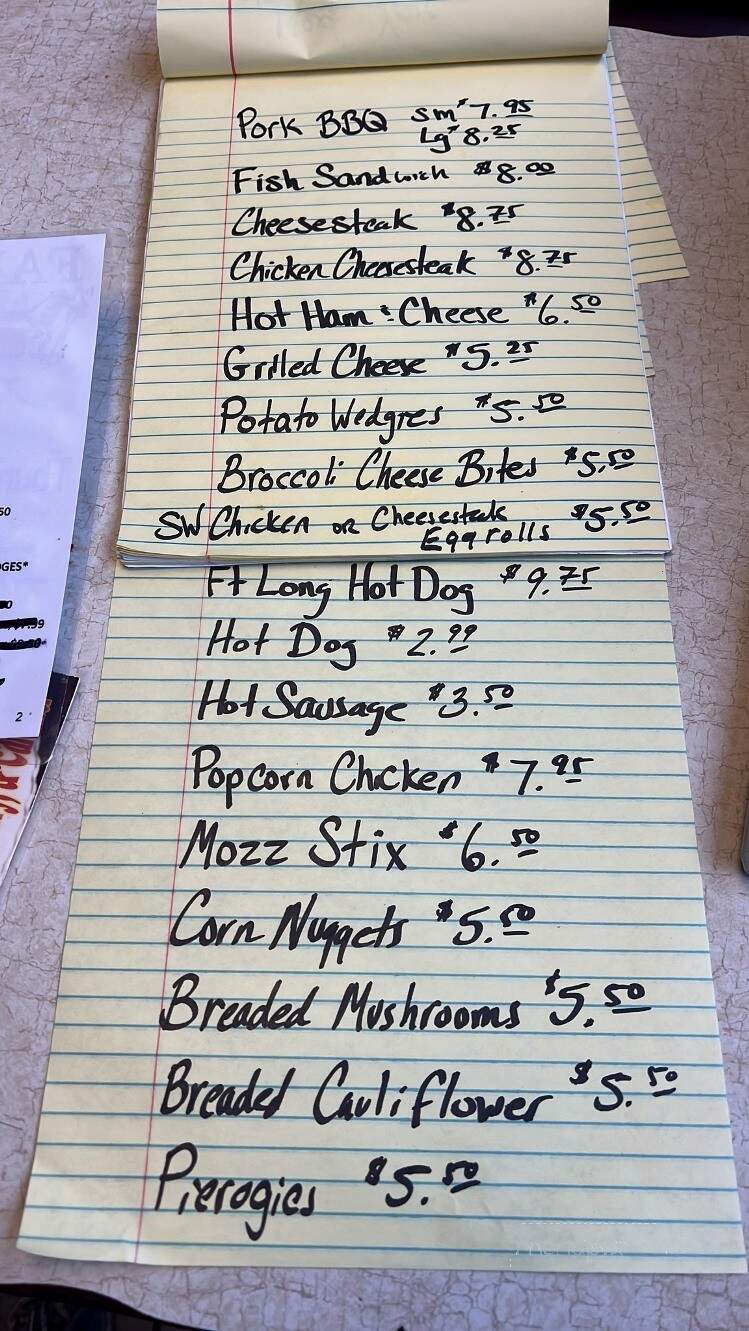 Pork BBQ sm $7.95
Lg $8.25
Fish Sandwich $8.00
Cheesesteak $8.75
Chicken Cheesesteak $8.75
Hot Ham & Cheese $6.50
Grilled Cheese $5.25
Potato Wedgres $5.50
Broccoli Cheese Bites $5.50
SW Chicken or Cheesesteak $5.50
Egg rolls
Ft Long Hot Dog $9.75
Hot Dog $2.99
Hot Sausage $3.50
Popcorn Chicken $7.95
Mozz Stix $6.50
Corn Nuggets $5.50
Breaded Mushrooms $5.50
Breaded Cauliflower $5.50
Pierogies $5.50
50
GES*
2